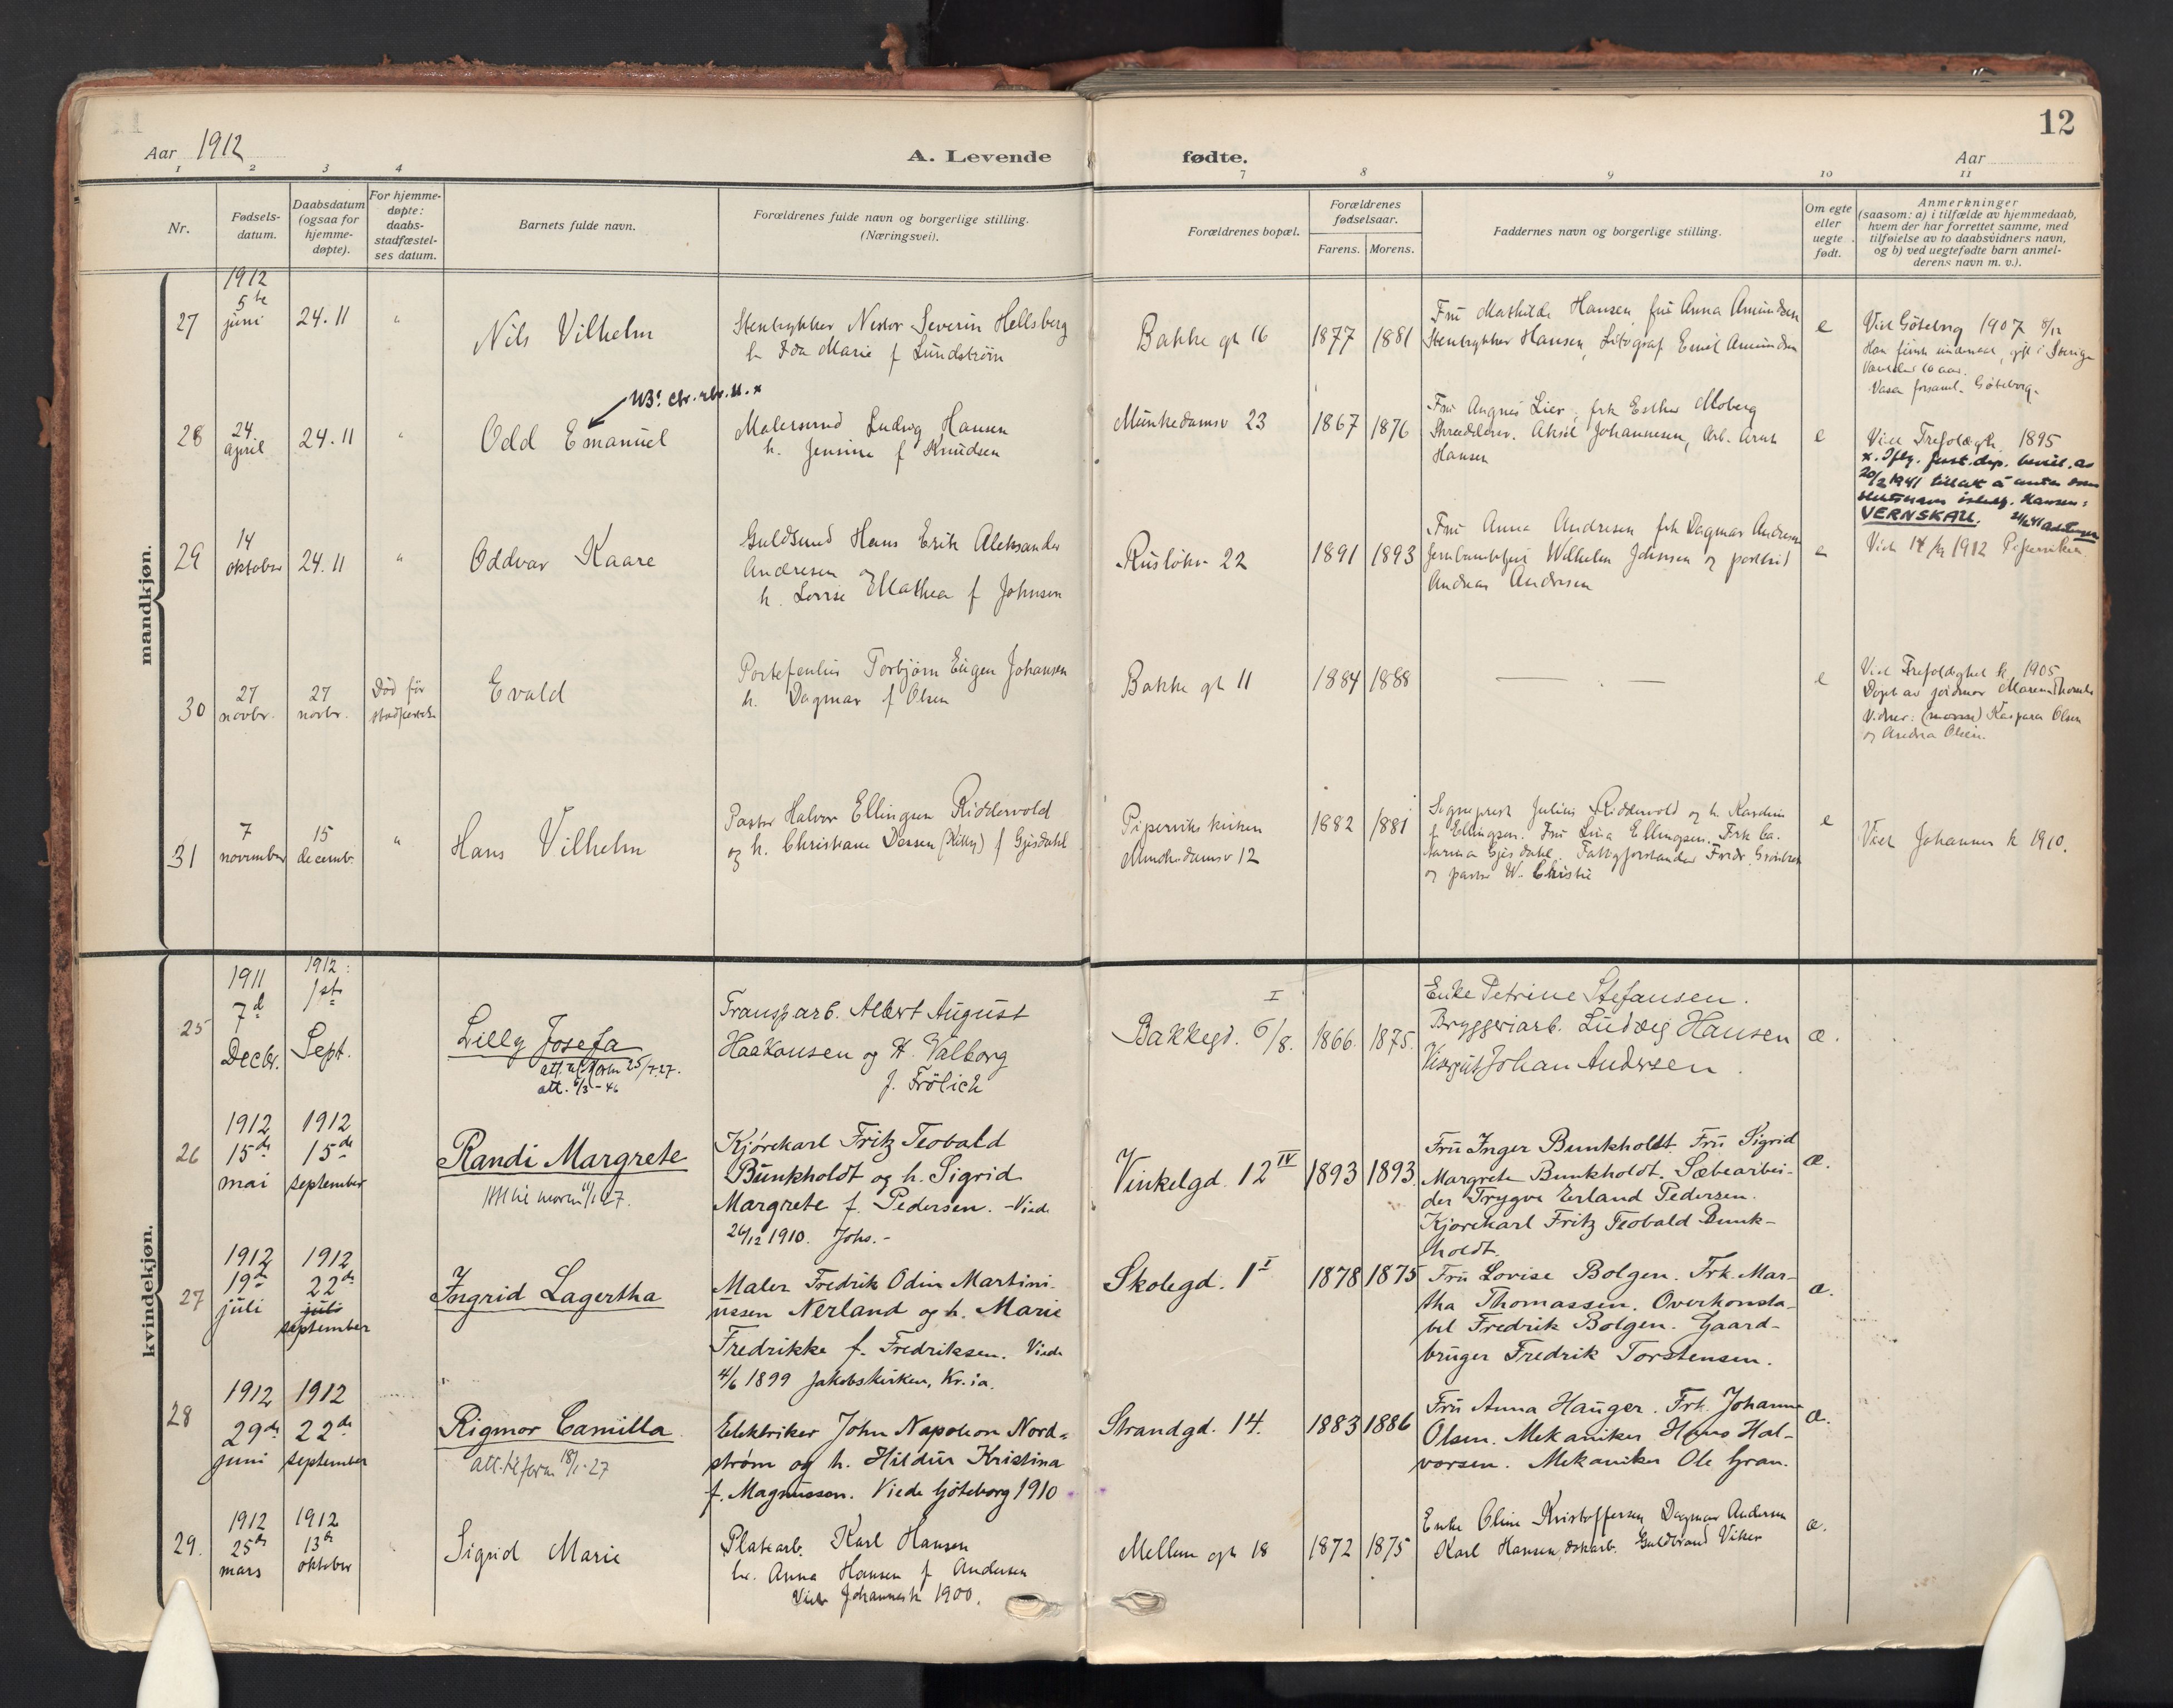 12
Aar 1912
A. Levende fødte.
Aar
1 2 3 4 7 8 9 10 11
Nr.
Fødsels-
datum.
Daabsdatum
(ogsaa for
hjemme-
døpte).
For hjemme-
døpte:
daabs-
stadfæstel-
ses datum.
Barnets fulde navn.
Forældrenes fulde navn og borgerlige stilling.
(Næringsvei).
Forældrenes bopæl.
Forældrenes
fødselsaar.
Farens. Morens.
Faddernes navn og borgerlige stilling.
Om egte
eller
uegte
født.
Anmerkninger
(saasom: a) i tilfælde av hjemmedaab,
hvem der har forrettet samme, med
tilføielse av to daabsvidners navn,
og b) ved uegtefødte barn anmel-
derens navn m. v.).
mandkjøn.
27
1912
5te
juni
24.11
"
Nils Vilhelm
Stentrykker Nestor Severin Hellsberg
h Ida Marie f Lundstrøm
Bakke gt 16
1877
1881
Fru Mathilde Hansen, fru Anna Amundsen
Stentrykker Hansen, Litograf Emil Amundsen
e
Viet Göteborg 1907 8/12
10 aar.
Vasa forsaml. Göteborg.
28
24
april
24.11
"
Odd Emanuel
Malersvend Ludvig Hansen
h. Jensine f Knudsen
Munkedamsv 23
1867
1876
Fru Augnes Lier, frk Esther Moberg
Aksel Johannesen, Arb. Arnt
Hansen
e
Viet Trefoldgh. 1895
x. Iflg. just.dep. bevill. av
20/2 1941 tillatt å
Hansen:
VERNSKAU.
29
14
oktober
24.11
"
Oddvar Kaare
Guldsmed Hans Erik Aleksander
Andresen og
h. Lovise Mathea f Johnsen
Ruseløkv 22
1891
1893
Fru Anna Andresen frk Dagmar Andresen
Wilhelm Johnsen og postbud
Andreas Andresen
e
1912
30
27
novbr.
27
novbr.
Død før
Evald
Torbjørn Eugen Johansen
h. Dagmar f Olsen
Bakke gt 11
1884
1888
— —
e
Viet Trefoldighet k 1905
Døpt av jordmor
Vidner: Kaspara Olsen
og Andrea Olsen.
31
7
november
15
decemb.
"
Hans Vilhelm
Pastor Halvor Ellingsen Riddervold
og h. Christiane Dessen (Kitty) f Gjesdahl
Piperviks kirken
Munkedamsv 12
1882
1881
Sogneprest Julius Riddervold og h. Karoline
f. Ellingsen. Fru Lina Ellingsen. Frk Ca-
Gjesdahl. Fattigforstander Fredr.
og pastor W. Christie
e
Viet Johannes k 1910.
kvindekjøn.
25
1911
7d
Decbr.
1912:
1ste
Sept.
Lilly Josefa
att. til
att. 6/3-46
Transp.arb. Albert August
Haakonsen og H. Valborg
f. Frölich
Bakkegd. 6/8. I
1866.
1875.
Enke Petrine Stefansen.
Bryggeriarb. Ludvig Hansen
Visergut Johan Andersen.
æ.
26
1912
15de
mai
1912
15de
september
Randi Margrete
Kjørekarl Fritz Teobald
Bunkholdt og h. Sigrid
Margrete f. Pedersen. -Viede
26/12 1910. Johs.-
Vinkelgd. 12 IV
1893
1893.
Fru Inger Bunkholdt. Fru Sigrid
Margrete Bunkholdt. Sæbearbei-
der Trygve Erland Pedersen.
Kjørekarl Fritz Teobald Bunk-
holdt.
æ.
27
1912
19de
juli
1912
22de
juli
september
Ingrid Lagertha
Maler Fredrik Odin Martini-
ussen Nerland og h. Marie
Fredrikke f. Fredriksen. Viede
4/6 1899 Jakobskirken, Kr.ia.
Skolegd. 1 I
1878
1875
Fru Lovise Bolgen. Frk. Mar-
tha Thomassen. Overkonsta-
bel Fredrik Bolgen. Gaard-
bruger Fredrik Torstensen.
æ.
28
1912
29de
juni
1912
22de
september
Rigmor Camilla
att. til form 18/1-27
Elektriker John Napoleon Nord-
strøm og h. Hildur Kristina
f. Magnusson. Viede Göteborg 1910
Strandgd. 14.
1883
1886
Fru Anna Hauger. Frk. Johanne
Olsen. Mekaniker Hans Hal-
vorsen. Mekaniker Ole Gran.
æ.
29.
1912
25de
mars
1912
13de
oktober
Sigrid Marie
Platearb. Karl Hansen
h. Anna Hansen f Andersen
Viede Johannesk 1900.
Mellem gt 18
1872
1875
Enke Oline Kristoffersen Dagmar Andersen
Karl Hansen, Guldbrand Viker
æ.